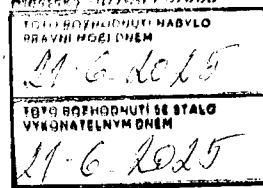 TOTO ROZHODNUTÍ NABYLO
PRÁVNÍ MOCI DNEM
21-6-2025
TOTO ROZHODNUTÍ SE STALO
VYKONATELNÝM DNEM
21-6-2025